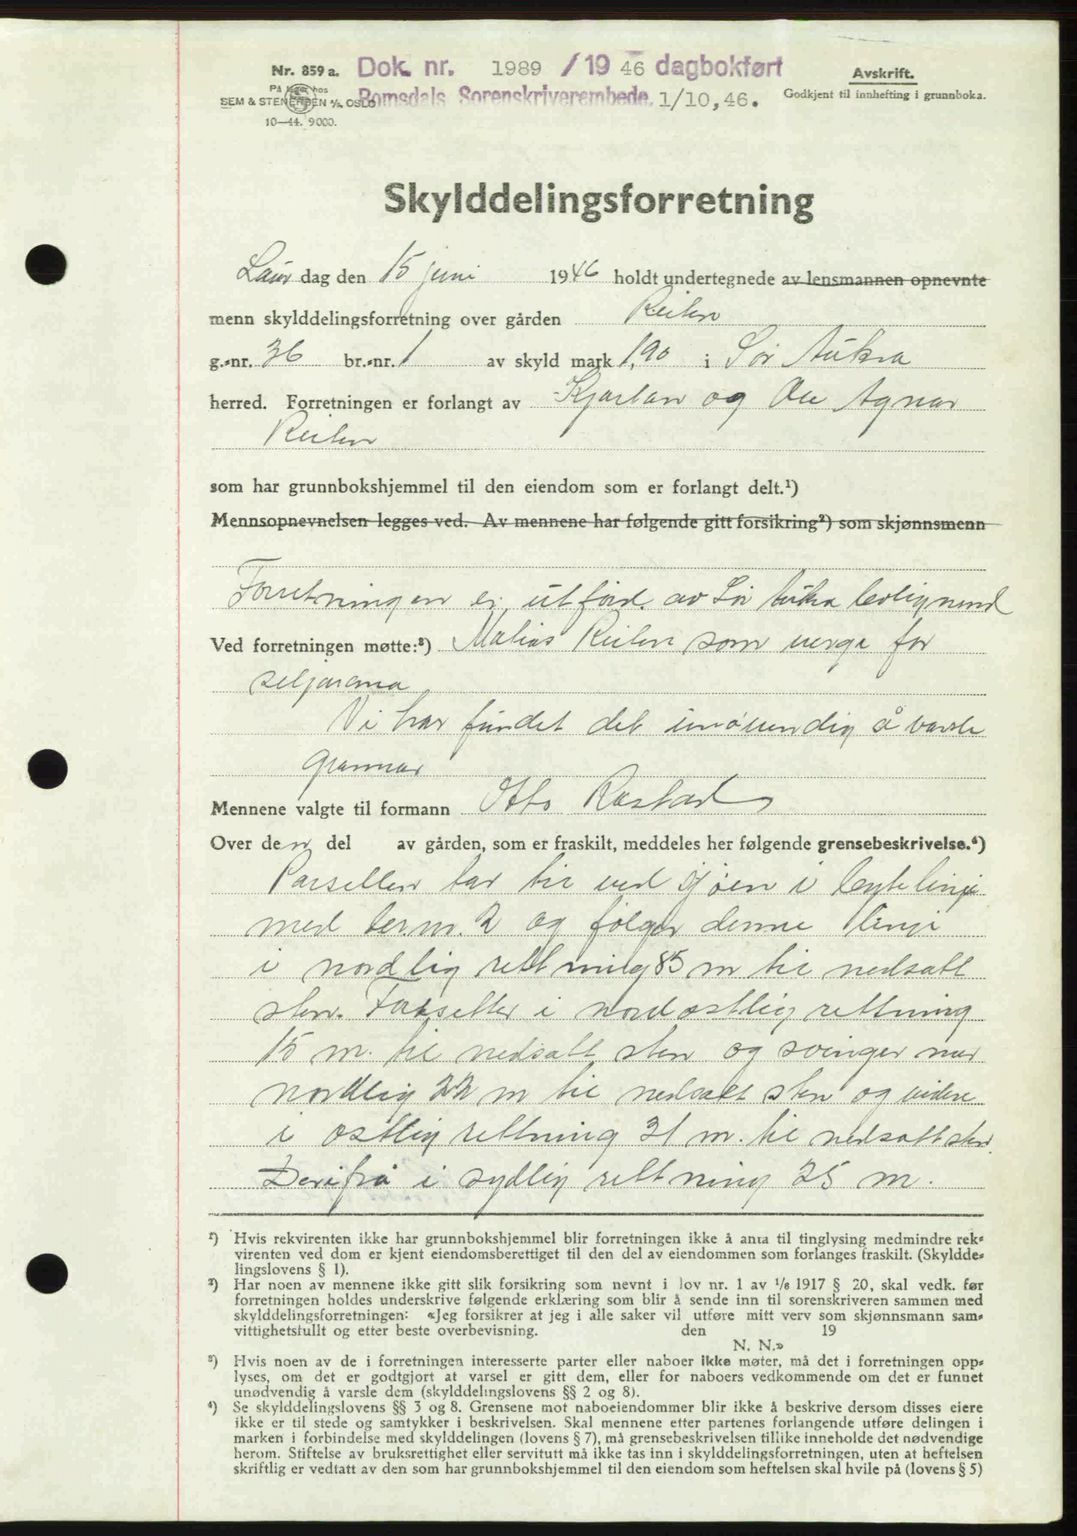 Nr. 859 a. Dok. nr. 1989 / 19 46 dagbokført Avskrift.
På lager hos
SEM & STENERSEN A/S, OSLO Romsdals Sorenskriverembede, 1/10,46. Godkjent til innhefting i grunnboka.
10—44. 9000.
Skylddelingsforretning
Laur dag den 15 juni 1946 holdt undertegnede av lensmannen opnevnte
menn skylddelingsforretning over gården Reiten
g.-nr. 36 br.-nr. 1 av skyld mark 1,90 i Sør Aukra
herred. Forretningen er forlangt av Kjartan og Ole Agnar
Reiten
som har grunnbokshjemmel til den eiendom som er forlangt delt.¹)
Mennsopnevnelsen legges ved. Av mennene har følgende gitt forsikring²) som skjønnsmenn
Forretningen er utførd av Sør Aukra
Ved forretningen møtte:³) Matias Reiten som verge for
seljarane
Vi har fundet det unøvendig å varsle
grannar
Mennene valgte til formann Otto Rastad
Over den del av gården, som er fraskilt, meddeles her følgende grensebeskrivelse.⁴)
Parsellen tar til ved sjøen i bytelinje
med br.nr. 2 og følger denne linje
i nordlig rettning 85 m til nedsatt
sten. Forsetter i nordostlig rettning
15 m. til nedsatt sten og svinger mer
nordlig 22 m til nedsatt sten og videre
i ostlig rettning 31 m. til nedsatt sten.
Derifrå i sydlig rettning 25 m.
¹) Hvis rekvirenten ikke har grunnbokshjemmel blir forretningen ikke å anta til tinglysing medmindre rek-
virenten ved dom er kjent eiendomsberettiget til den del av eiendommen som forlanges fraskilt. (Skyldde-
lingslovens § 1).
²) Har noen av mennene ikke gitt slik forsikring som nevnt i lov nr. 1 av 1/6 1917 § 20, skal vedk. før
forretningen holdes underskrive følgende erklæring som blir å sende inn til sorenskriveren sammen med
skylddelingsforretningen: «Jeg forsikrer at jeg i alle saker vil utføre mitt verv som skjønnsmann sam-
vittighetsfullt og etter beste overbevisning. den 19
N. N.»
³) Hvis noen av de i forretningen interesserte parter eller naboer ikke møter, må det i forretningen opp-
lyses, om det er godtgjort at varsel er gitt dem, eller for naboers vedkommende om det er funnet
unødvendig å varsle dem (skylddelingslovens §§ 2 og 8).
⁴) Se skylddelingslovens §§ 3 og 8. Grensene mot naboeiendommer blir ikke å beskrive dersom disses eiere
ikke er til stede og samtykker i beskrivelsen. Skal mennene etter partenes forlangende utføre delingen i
marken i forbindelse med skylddelingen (lovens § 7), må grensebeskrivelsen tillike inneholde det nødvendige
herom. Stiftelse av bruksrettighet eller servitutt må ikke tas inn i skylddelingsforretningen, uten at heftelsen
skriftlig er vedtatt av den som har grunnbokshjemmel til den eiendom som heftelsen skal hvile på (lovens § 5)